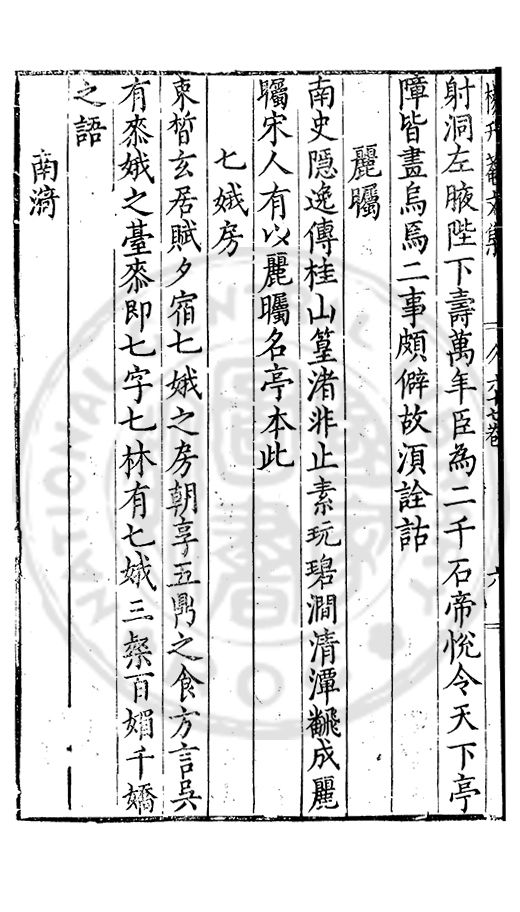 楊升菴文集 六十七卷 六
射洞左腋陛下壽萬年臣為二千石帝悅令天下亭
障皆畫烏焉二事頗僻故湏詮詁
麗矚
南史隱逸傳桂山篁渚非止素玩碧澗清潭翻成麗
矚宋人有以麗矚名亭本此
七娥房
束晳玄居賦夕宿七娥之房朝享五鼎之食方言吳
有桼娥之臺桼即七字七林有七娥三粲百媚千嬌
之語
南漪